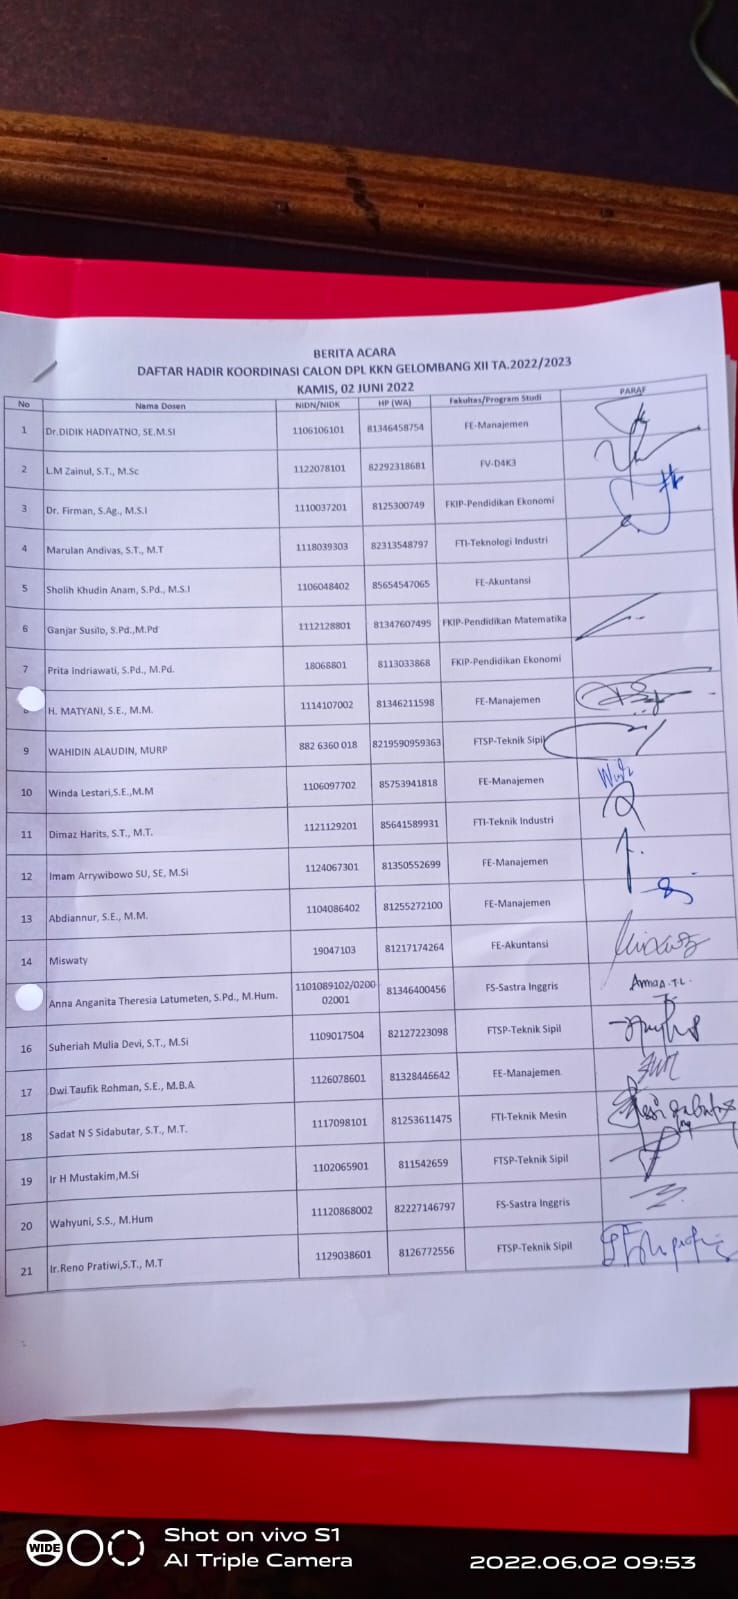 BERITA ACARA
DAFTAR HADIR KOORDINASI CALON DPL KKN GELOMBANG XII TA.2022/2023
KAMIS, 02 JUNI 2022
No Nama Dosen NIDN/NIDK HP (WA) Fakultas/Program Studi PARAF
1 Dr.DIDIK HADIYATNO, SE.M.SI 1106106101 81346458754 FE-Manajemen
2 L.M Zainul, S.T., M.Sc 1122078101 82292318681 FV-D4K3
3 Dr. Firman, S.Ag., M.S.I 1110037201 8125300749 FKIP-Pendidikan Ekonomi
4 Marulan Andivas, S.T., M.T 1118039303 82313548797 FTI-Teknologi Industri
5 Sholih Khudin Anam, S.Pd., M.S.I 1106048402 85654547065 FE-Akuntansi
6 Ganjar Susilo, S.Pd.,M.Pd 1112128801 81347607495 FKIP-Pendidikan Matematika
7 Prita Indriawati, S.Pd., M.Pd. 18068801 8113033868 FKIP-Pendidikan Ekonomi
H. MATYANI, S.E., M.M. 1114107002 81346211598 FE-Manajemen
9 WAHIDIN ALAUDIN, MURP 882 6360 018 8219590959363 FTSP-Teknik Sipil
10 Winda Lestari,S.E.,M.M 1106097702 85753941818 FE-Manajemen
11 Dimaz Harits, S.T., M.T. 1121129201 85641589931 FTI-Teknik Industri
12 Imam Arrywibowo SU, SE, M.Si 1124067301 81350552699 FE-Manajemen
13 Abdiannur, S.E., M.M. 1104086402 81255272100 FE-Manajemen
14 Miswaty 19047103 81217174264 FE-Akuntansi
Anna Anganita Theresia Latumeten, S.Pd., M.Hum. 1101089102/0200 02001 81346400456 FS-Sastra Inggris
16 Suheriah Mulia Devi, S.T., M.Si 1109017504 82127223098 FTSP-Teknik Sipil
17 Dwi Taufik Rohman, S.E., M.B.A 1126078601 81328446642 FE-Manajemen
18 Sadat N S Sidabutar, S.T., M.T. 1117098101 81253611475 FTI-Teknik Mesin
19 Ir H Mustakim,M.Si 1102065901 811542659 FTSP-Teknik Sipil
20 Wahyuni, S.S., M.Hum 11120868002 82227146797 FS-Sastra Inggris
21 Ir.Reno Pratiwi,S.T., M.T 1129038601 8126772556 FTSP-Teknik Sipil
WIDE Shot on vivo S1
AI Triple Camera 2022.06.02 09:53